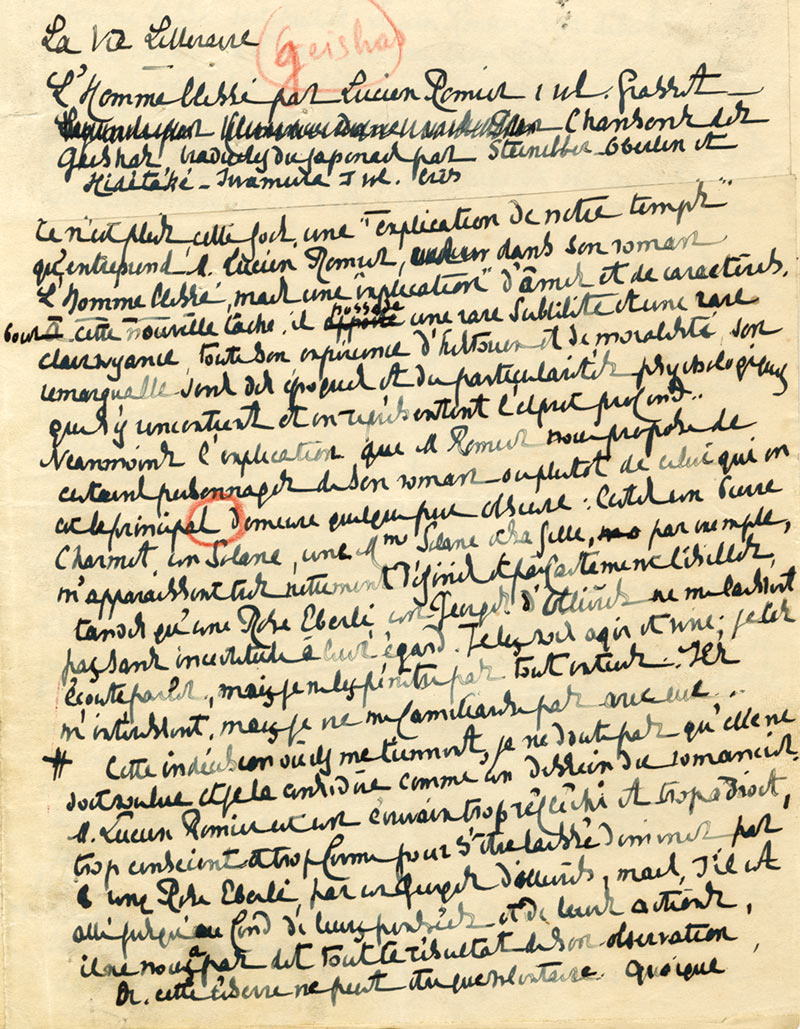 La Vie Littéraire
Geishas
L'Homme blessé par Lucien Romier 1 vol. Grasset
Chansons des
Geishas, traduites du japonais par Steinilber-Oberlin et
Hidétaké-Iwamura 1 vol. Crès
Ce n'est plus, cette fois, une "explication de notre temps"
qu'entreprend M. Lucien Romier, dans son roman
L'Homme blessé, mais une "explication" d'âmes et de caractères.
Pour cette nouvelle tâche, il possède une rare subtilité et une rare
clairvoyance, toute son expérience d'historien et de moraliste, son
remarquable sens des époques et des particularités psychologiques
qui s'y rencontrent et en représentent l'esprit profond..
Néanmoins l'explication que M Romier nous propose de
certains personnages de son roman ou plutôt de celui qui en
est le principal demeure quelque peu obscure. Certes un Pierre
Charmot, un Solane, une Mme Solane et sa fille, par exemple,
m'apparaissent très nettement définis et parfaitement lisibles,
tandis qu'une Rose Eberlé, un Georges d' ne me laissent
pas sans incertitude à leur égard. Je les vois agir et vivre; je les
écoute parler, mais je ne les pénètre pas tout entiers. Ils
m'intéressent, mais je ne me familiarise pas avec eux ..
# Cette indécision où ils me tiennent, je ne doute pas qu'elle ne
soit voulue et je la considère comme un dessein du romancier.
M. Lucien Romier est un écrivain trop réfléchi et trop adroit,
trop conscient et trop ferme pour s'être laissé dominer par
une Rose Eberlé, par un Georges, mais, s'il est
allé jusqu'au fond de leurs pensées et de leurs actions,
il ne nous a pas dit tout le résultat de son observation
Or, cette réserve ne peut être que volontaire. Quoique